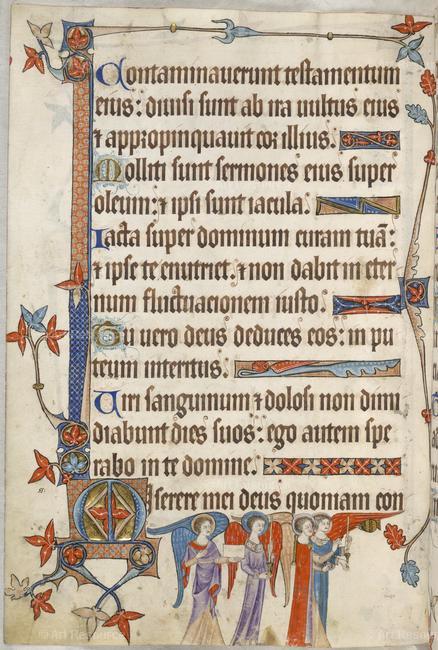 Contaminauerunt testamentum
eius: diuisi sunt ab ira uultus eius
⁊ appropinquauit cor illius.
Molliti sunt sermones eius super
oleum: ⁊ ipsi sunt iacula.
Iacta super dominum curam tuã:
⁊ ipse te enutriet. ⁊ non dabit in eter
num fluctuacionem iusto.
Tu uero deus deduces eos: in pu
teum interitus.
Uiri sanguinum ⁊ dolosi non dimi
diabunt dies suos: ego autem spe
rabo in te domine.
Miserere mei deus quoniam con
© Art Resource